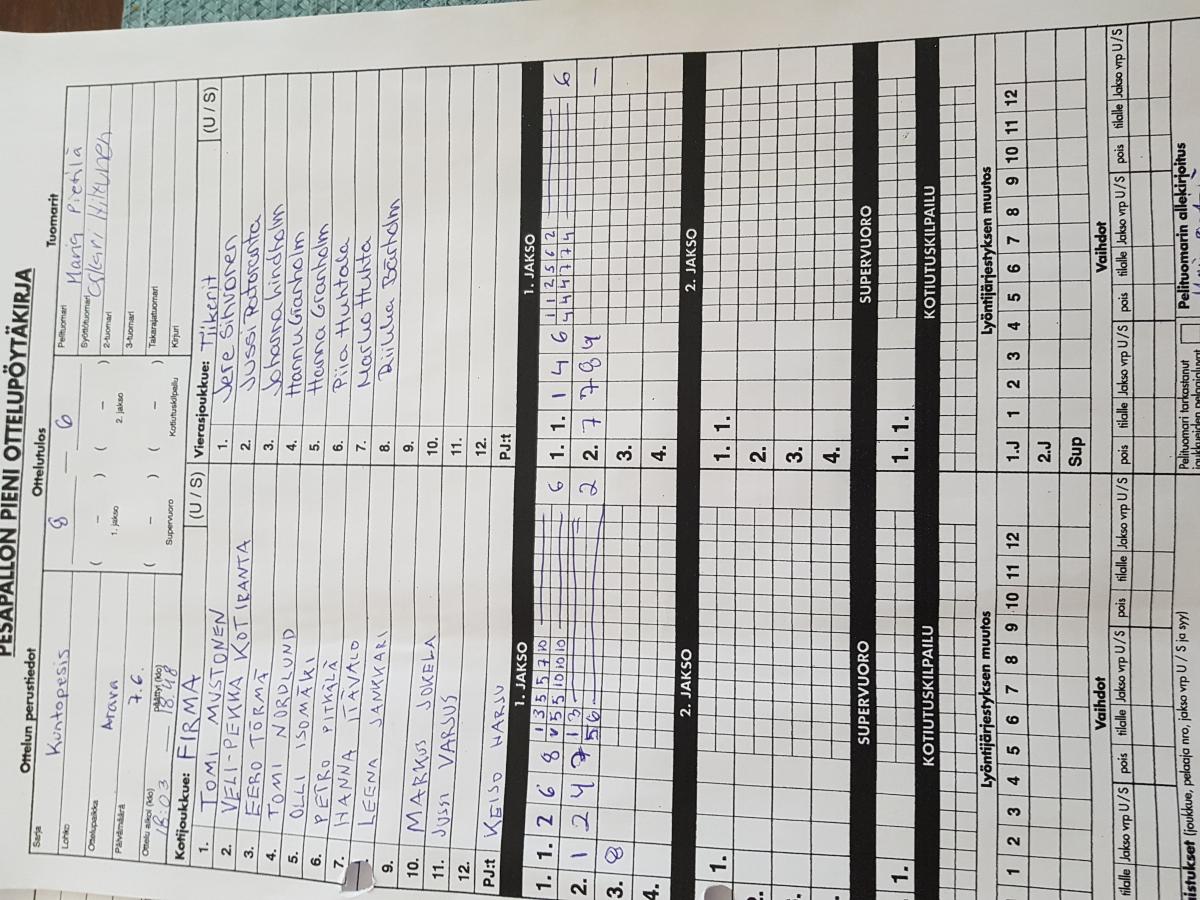 PESÄPALLON PIENI OTTELUPÖYTÄKIRJA
Ottelun perustiedot
Ottelutulos
Tuomarit
Sarja
Kuntopesis
Lohko
Ottelupaikka
Arava
Päivämäärä
7.6.
Ottelu alkoi (klo)
18:03
päättyi (klo)
18:48
8 6
( – ) ( – )
1. jakso 2. jakso
( – ) ( – )
Supervuoro Kotiutuskilpailu
Pelituomari
Maria Pietilä
Syöttötuomari
2-tuomari
3-tuomari
Takarajatuomari
Kirjuri
Kotijoukkue: FIRMA (U / S)
1. TOMI MUSTONEN
2. VELI-PEKKA KOTIRANTA
3. EERO TÖRMÄ
4. TOMI NORDLUND
5. OLLI ISOMÄKI
6. PETRO PITKÄLÄ
7. HANNA ITÄVALO
LEENA JANKKARI
9.
10. MARKUS JOKELA
11. JUSSI VARJUS
12.
PJ:t KEIJO HARJU
Vierasjoukkue: Tiikerit (U / S)
1. Jere Sihvonen
2. Jussi Patoranta
3. Johanna Lindholm
4. Hannu Granholm
5. Hanna Granholm
6. Piia Huhtala
7. Marko Huhta
8. Riikka Barholm
9.
10.
11.
12.
PJ:t
1. JAKSO 1. JAKSO
1. 1. 2 6 8 1 3 5 5 7 10 6
5 5 10 10 10
2. 1 2 4 7 1 3 2
5 6
3. 8
4.
1. 1. 1 4 6 1 1 2 5 6 2 6
4 4 4 7 7 4
2. 7 7 8 4 –
3.
4.
2. JAKSO 2. JAKSO
1.
1. 1.
2.
3.
4.
SUPERVUORO SUPERVUORO
1. 1. 1.
KOTIUTUSKILPAILU KOTIUTUSKILPAILU
Lyöntijärjestyksen muutos Lyöntijärjestyksen muutos
1 2 3 4 5 6 7 8 9 10 11 12
1.J 1 2 3 4 5 6 7 8 9 10 11 12
2.J
Sup
Vaihdot Vaihdot
tilalle Jakso vrp U/S pois tilalle Jakso vrp U/S pois tilalle Jakso vrp U/S
pois tilalle Jakso vrp U/S pois tilalle Jakso vrp U/S pois tilalle Jakso vrp U/S
istukset (joukkue, pelaaja nro, jakso vrp, U / S ja syy)
Pelituomari tarkastanut
joukkueiden pelaajaluvat
Pelituomarin allekirjoitus